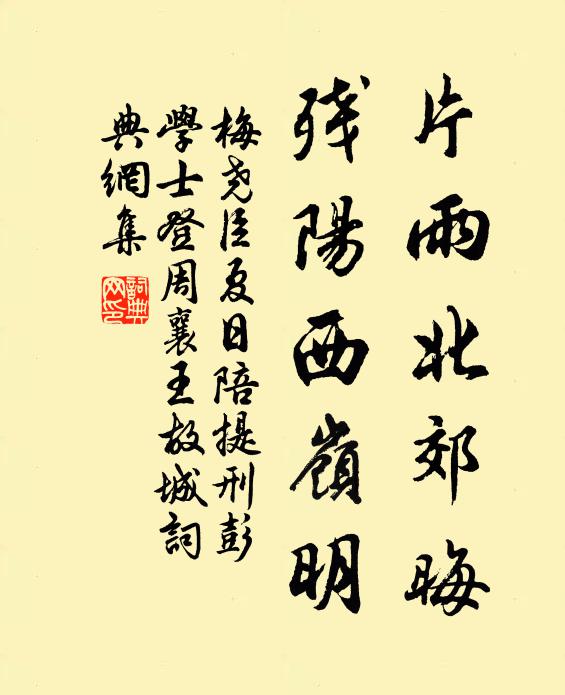 片雨北郊晦
残陽西嶺明
梅尧臣夏日陪提刑彭
學士登周襄王故城詞
典網集
詞典
网印